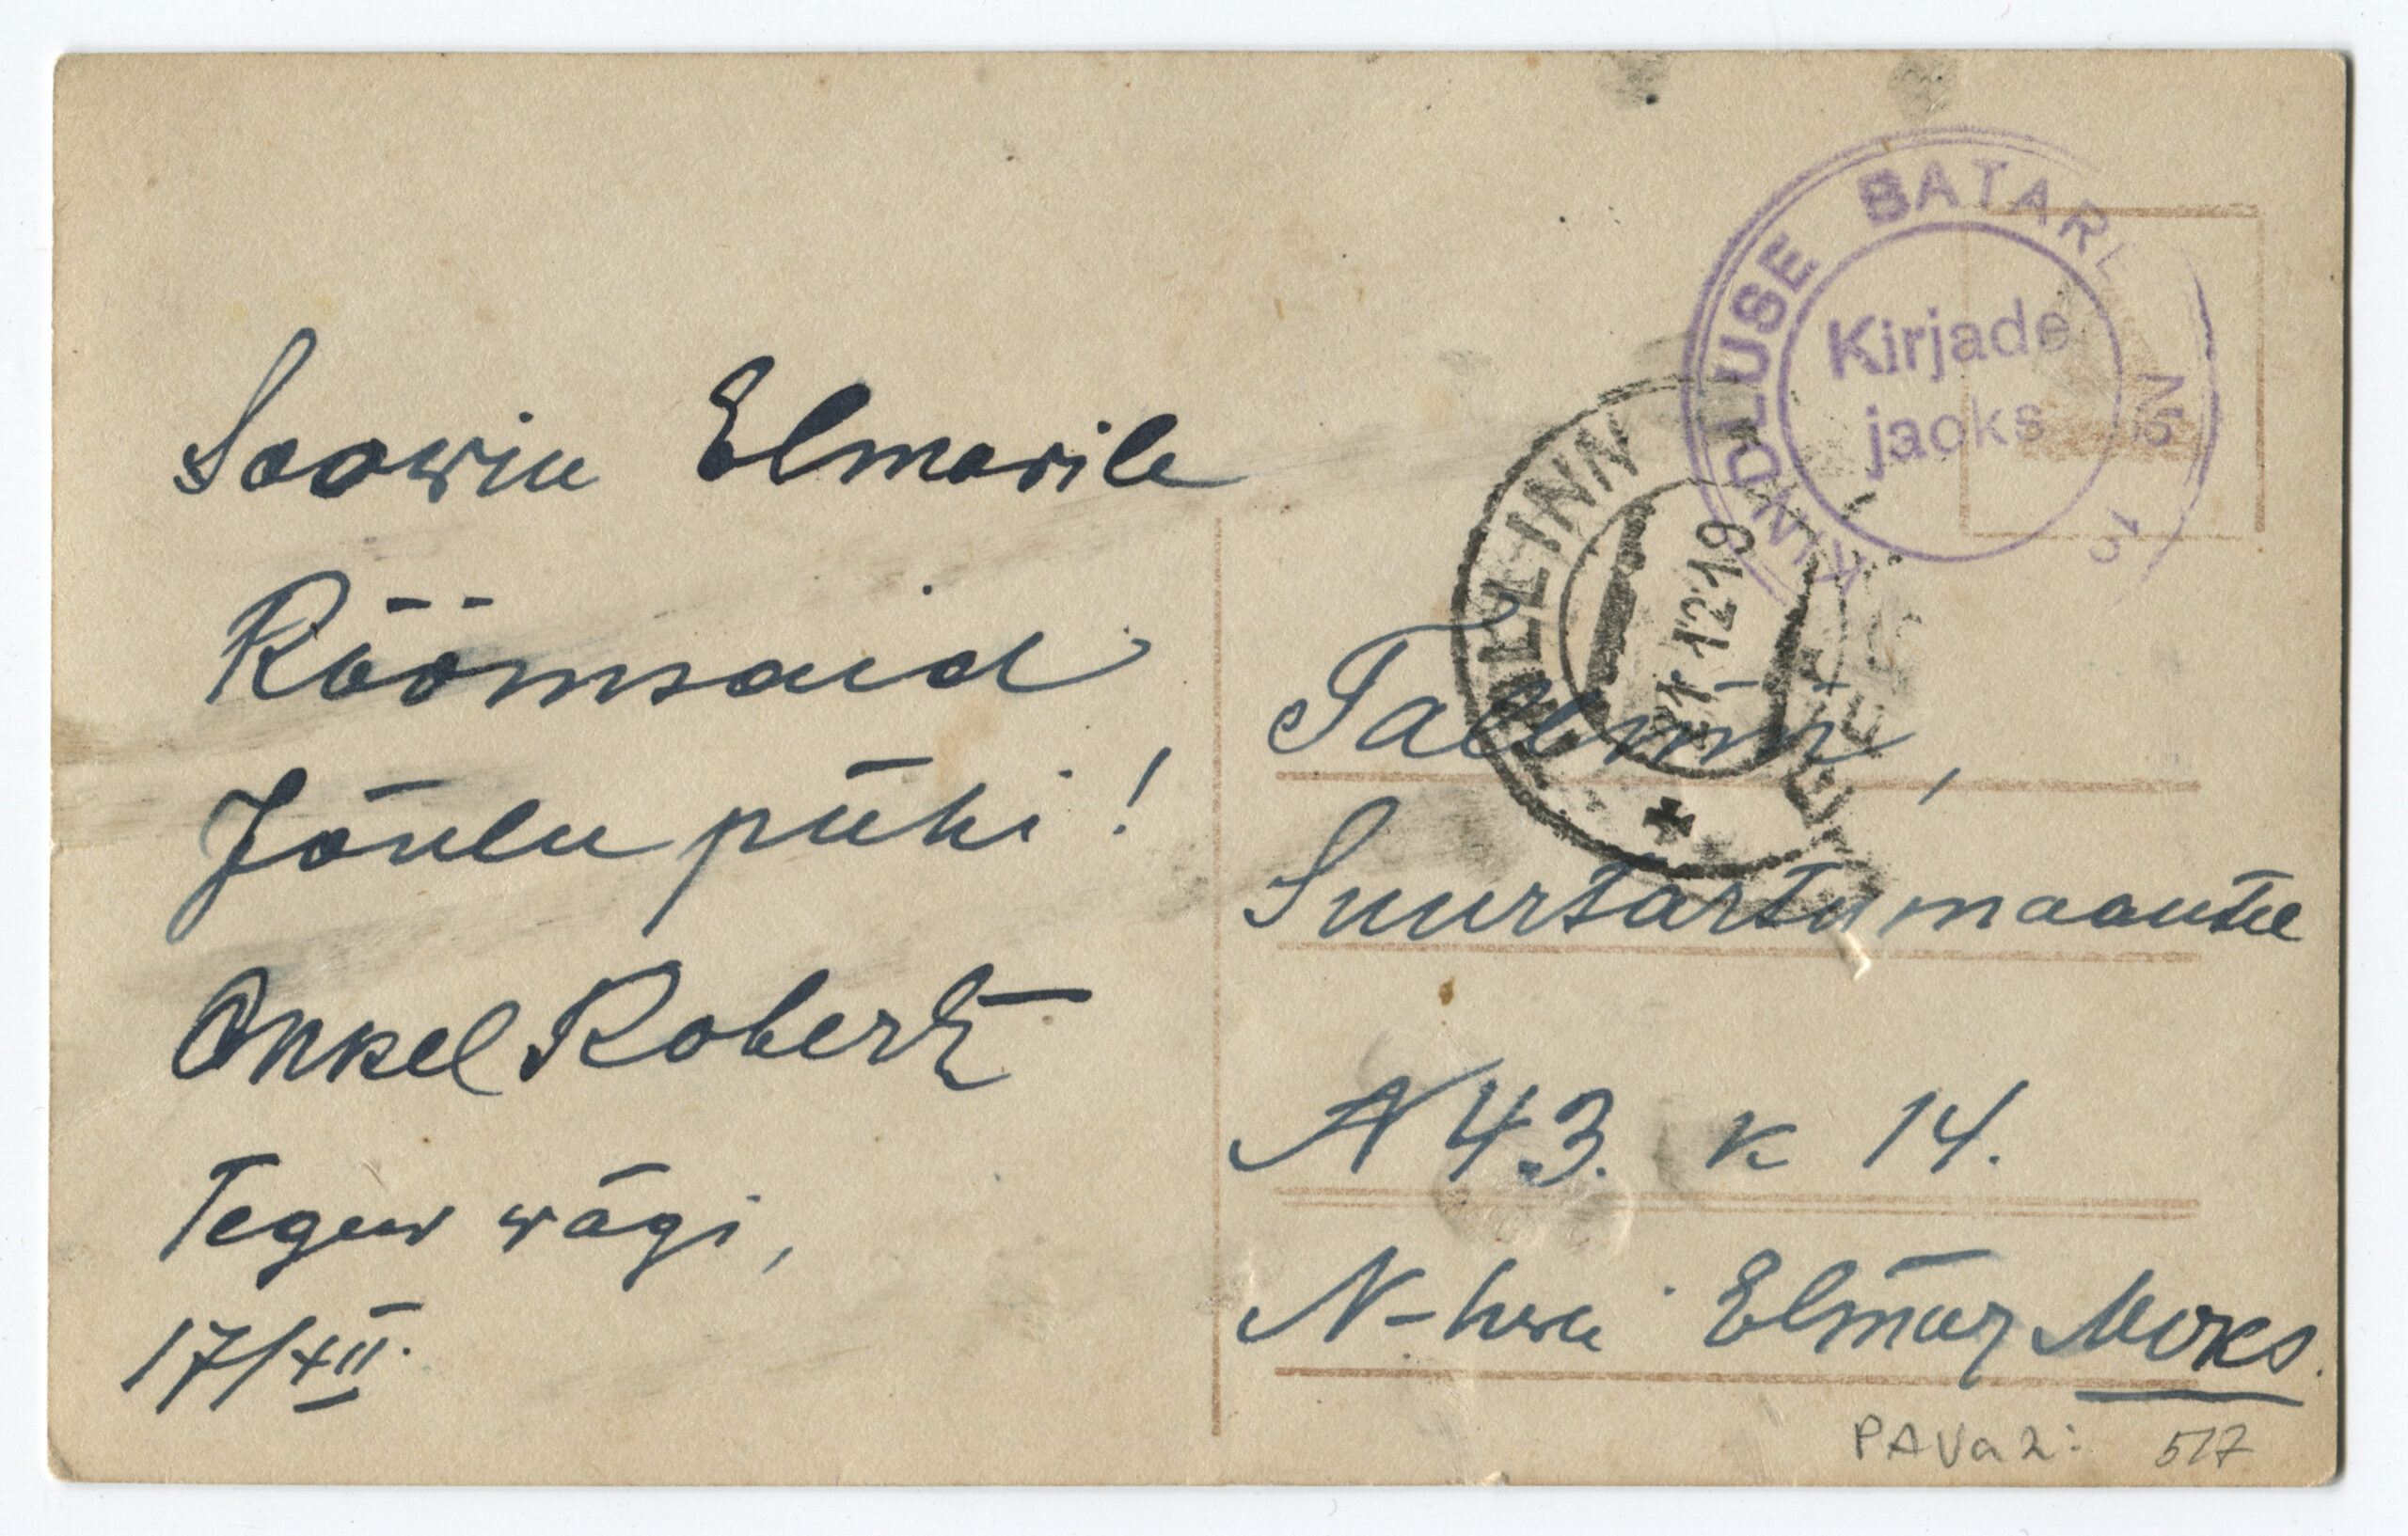 Soowin Elmarile
Rõõmsaid
Jõulu pühi!
Onkel Robert
Tegew wägi,
17/XII.
KINDLUSE BATAREI № 15
Kirjade
jaoks
TALLINN EESTI
21 12 19
Tallinn,
Suurtartu maantee
N 43. k 14.
N-hrra Elmar Moks.
PAVa2: 517